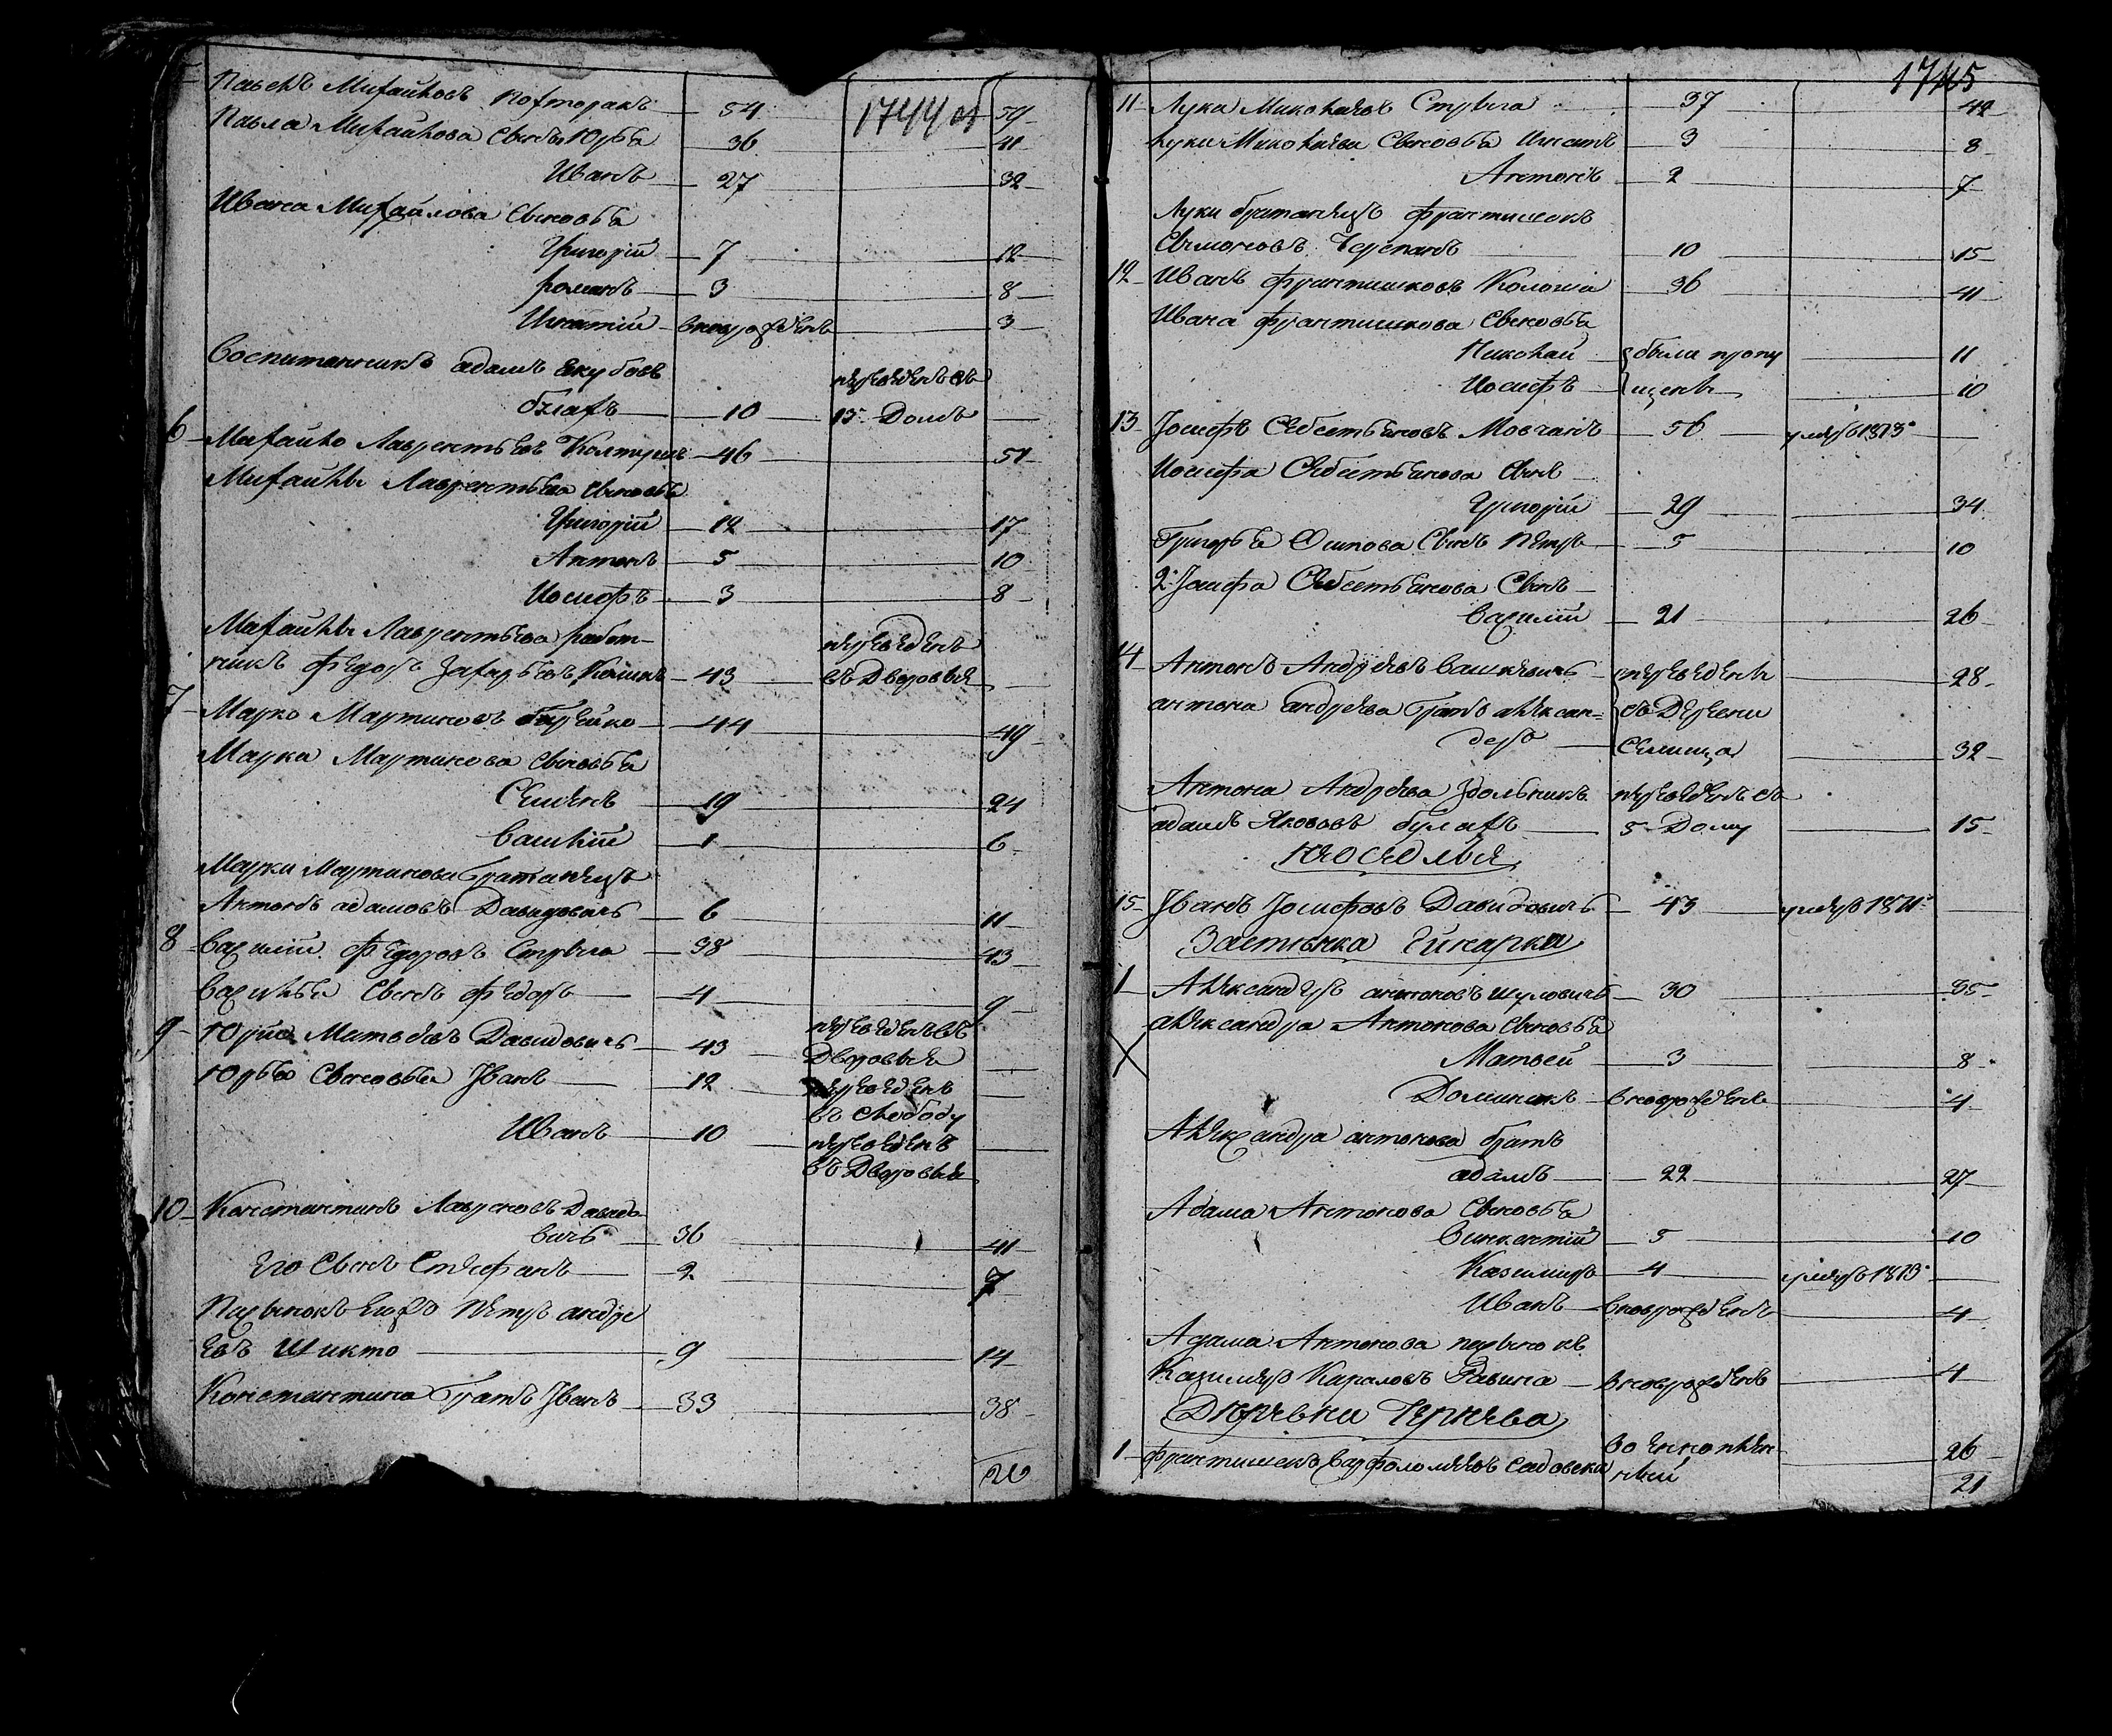 1744 об
Павелъ Михайловъ Полторакъ 54 59
Павла Михайлова Сынъ Юрья 36 41
Иванъ 27 32
Ивана Михайлова Сыновья
Григорій 7 12
Романъ 3 8
Игнатій вноврожденъ 3
Воспитанникъ адамъ Якубовъ переведенъ въ
10 15 Домъ
6 Михайло Лаврентьевъ 46 51
Михайлы Лаврентьева Сыновья
Григорій 12 17
Антонъ 5 10
Иосифъ 3 8
Михайлы Лаврентьева работ-
никъ Федоръ Захарьевъ 43 переведенъ въ Дворовыя
7 Марко Мартиновъ 44 49
Марка Мартинова Сыновья
Семенъ 19 24
Василій 1 6
Марки Мартинова Братанецъ
Антонъ адамовъ Давидовичъ 6 11
8 Василій Федоровъ Стрыга 38 43
Василья Сынъ Федоръ 4 9
9 Юрій Матвеевъ Давидовичъ 43 переведенъ въ Дворовыя
Юрья Сыновья Іванъ 12 переведенъ въ Слободу
Иванъ 10 переведенъ въ Дворовыя
10 Константинъ Лавреновъ Давидо
вичъ 36 41
Его Сынъ Стефанъ 2 7
Пасынокъ Егоръ Петръ андре
евъ Шикто 9 14
Константина Братъ Іванъ 33 38
20
1745
11 Лука Миколаевъ Стрыга 37 42
Луки Миколаева Сыновья Игнатъ 3 8
Антонъ 2 7
Луки братанецъ Франтишекъ
Сымоновъ Черепанъ 10 15
12 Иванъ Франтишковъ Колоша 36 41
Ивана Франтишкова Сыновья
Николай были пропу 11
Иосифъ щены 10
13 Іосифъ Себестьяновъ Мовчанъ 56 умеръ 1813
Иосифа Себестьянова Сынъ
Григорій 29 34
Григорья Осипова Сынъ Петръ 5 10
2 Іосифа Себестьянова Сынъ
Василій 21 26
14 Антонъ Андреевъ Вашкевичъ переведены 28
антона андреева Братъ алексан= съ Деревни
деръ Селища 32
Антона Андреева Здольникъ переведенъ съ
адамъ Яковавъ 5 Дому 15
неоседлыя
15 Іванъ Іосифовъ Давидовичъ 43 умеръ 1811
Застенка Гинарка
1 Александръ антоновъ Шуловичъ 30 35
александра Антонова Сыновья
Матвей 3 8
Доминикъ вноврожденъ 4
Александра антонова братъ
адамъ 22 27
Адама Антонова Сыновья
Викентій 5 10
Казимиръ 4 умеръ 1813
Иванъ вноврожденъ 4
Адама Антонова пасынокъ
Казимеръ Кароловъ Равина вноврожденъ 4
Деревни Чернева
1 Франтишекъ Варфоломеевъ Садовски военноплен- 26
ный
21